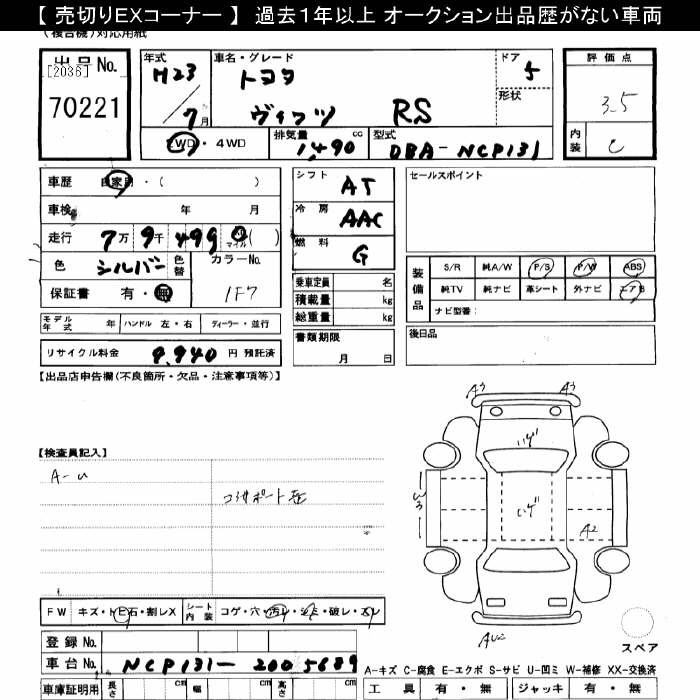 【 売切りEXコーナー 】 過去1年以上 オークション出品歴がない車両
(複合機)対応用紙
出品No. [2036] 70221
年式 H23 / 7月
車名・グレード トヨタ ヴィッツ RS
ドア 5
形状
評価点 3.5
内装 C
2WD・4WD
排気量 1490 cc
型式 DBA-NCP131
車歴 自家用・( )
車検 年 月
走行 7万9千499 Km マイル ( )
色 シルバー 色替 カラーNo. 1F7
保証書 有・無
シフト AT
冷房 AAC
燃料 G
乗車定員 名
積載量 kg
総重量 kg
書類期限 月 日
セールスポイント
装備品 S/R 純A/W P/S P/W ABS
純TV 純ナビ 革シート 外ナビ エアB
ナビ型番:
後日品
モデル年式 年 ハンドル 左・右 ディーラー・並行
リサイクル料金 9,940 円 預託済
【出品店申告欄(不良箇所・欠品・注意事項等)】
【検査員記入】
A-U
A3 A3
W3
A2
AU2
スペア
FW キズ・トビ石・割レX シート内装 コゲ・穴・汚レ・シミ・破レ・スレ
登録No.
車台No. NCP131-2005689
A-キズ C-腐食 E-エクボ S-サビ U-凹ミ W-補修 XX-交換済
車庫証明用 長さ cm 幅 cm 高さ cm
工具 有・無 ジャッキ 有・無